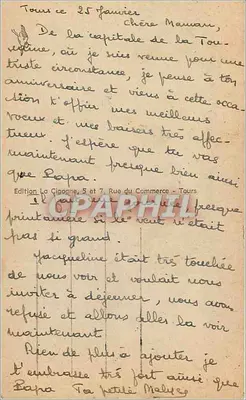 Tours ce 25 Janvier
Chère Maman,
De la capitale de la Tou-
raine, où je suis venue pour une
triste circonstance, je pense à ton
anniversaire et viens à cette occa-
sion t'offrir mes meilleurs
voeux et mes baisers très affec-
tueux. J'espère que tu vas
maintenant presque bien ainsi
que Papa.
Edition La Cigogne, 5 et 7, Rue du Commerce - Tours
CPAPHIL
Il presque
printanière si le vent n'était
pas si grand.
Jacqueline était très touchée
de nous voir et voulait nous
inviter à déjeuner, nous avons
refusé et allons aller la voir
maintenant
Rien de plus à ajouter je
t'embrasse très fort ainsi que
Papa Ta petite